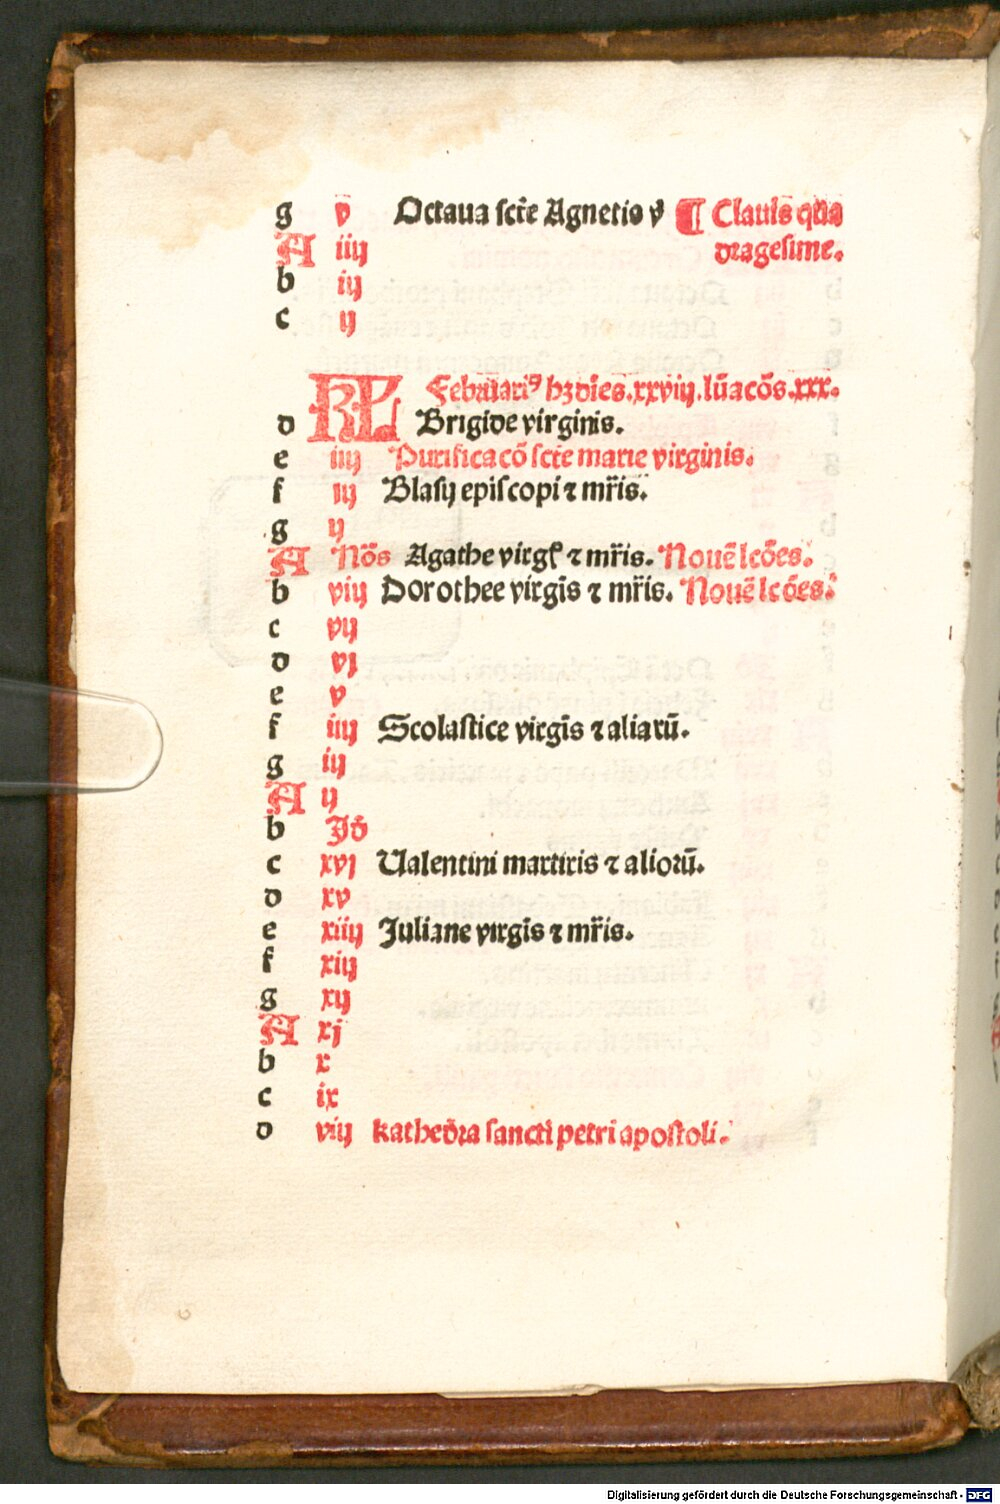 g v Octaua sct̄e Agnetis v̓ ¶ Clauis q̄ua
A iiij dragesime.
b iij
c ij
KL Februari⁹ hꝫ dīes .xxviij. lūacōs .xxx.
d Brigide virginis.
e iiij Purificacō sct̄e marie virginis.
f iij Blasij episcopi ⁊ mr̄is.
g ij
A Nōs Agathe virgꝭ ⁊ mr̄is. Nouē lcōes.
b viij Dorothee virgīs ⁊ mr̄is. Nouē lcōes.
c vij
d vj
e v
f iiij Scolastice virgīs ⁊ aliarū.
g iij
A ij
b Jd̄
c xvj Ualentini martiris ⁊ aliorū.
d xv
e xiiij Juliane virgīs ⁊ mr̄is.
f xiij
g xij
A xj
b x
c ix
d viij kathed̄ra sancti petri apostoli.
Digitalisierung gefördert durch die Deutsche Forschungsgemeinschaft - DFG